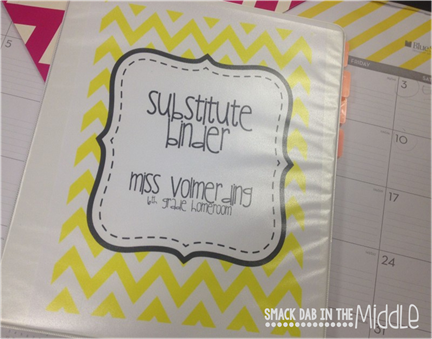 substitute
binder
miss volmerding
6th grade homeroom
5
12
3
10
17
24
31
SMACK DAB IN THE Middle